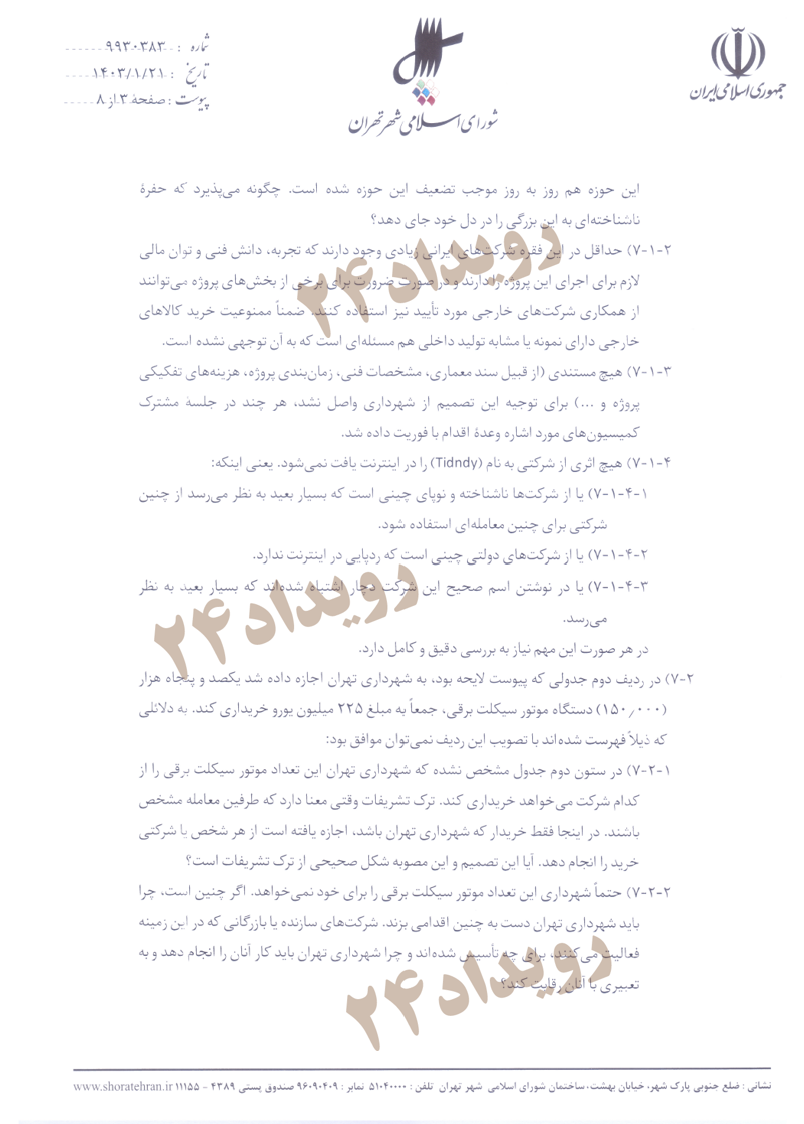 جمهوری اسلامی ایران
شورای اسلامی شهر تهران
شماره : ۹۹۳۰۳۸۳
تاریخ : ۱۴۰۳/۱/۲۱
پیوست : صفحهٔ ۳ از ۸
این حوزه هم روز به روز موجب تضعیف این حوزه شده است. چگونه می‌پذیرد که حفرهٔ
ناشناخته‌ای به این بزرگی را در دل خود جای دهد؟
۷-۱-۲) حداقل در این فقره شرکت‌های ایرانی زیادی وجود دارند که تجربه، دانش فنی و توان مالی
لازم برای اجرای این پروژه را دارند و در صورت ضرورت برای برخی از بخش‌های پروژه می‌توانند
از همکاری شرکت‌های خارجی مورد تأیید نیز استفاده کنند. ضمناً ممنوعیت خرید کالاهای
خارجی دارای نمونه یا مشابه تولید داخلی هم مسئله‌ای است که به آن توجهی نشده است.
۷-۱-۳) هیچ مستندی (از قبیل سند معماری، مشخصات فنی، زمان‌بندی پروژه، هزینه‌های تفکیکی
پروژه و ...) برای توجیه این تصمیم از شهرداری واصل نشد، هر چند در جلسهٔ مشترک
کمیسیون‌های مورد اشاره وعدهٔ اقدام با فوریت داده شد.
۷-۱-۴) هیچ اثری از شرکتی به نام (Tidndy) را در اینترنت یافت نمی‌شود. یعنی اینکه:
۷-۱-۴-۱) یا از شرکت‌ها ناشناخته و نوپای چینی است که بسیار بعید به نظر می‌رسد از چنین
شرکتی برای چنین معامله‌ای استفاده شود.
۷-۱-۴-۲) یا از شرکت‌های دولتی چینی است که ردپایی در اینترنت ندارد.
۷-۱-۴-۳) یا در نوشتن اسم صحیح این شرکت دچار اشتباه شده‌اند که بسیار بعید به نظر
می‌رسد.
در هر صورت این مهم نیاز به بررسی دقیق و کامل دارد.
۷-۲) در ردیف دوم جدولی که پیوست لایحه بود، به شهرداری تهران اجازه داده شد یکصد و پنجاه هزار
(۱۵۰٫۰۰۰) دستگاه موتور سیکلت برقی، جمعاً به مبلغ ۲۲۵ میلیون یورو خریداری کند. به دلائلی
که ذیلاً فهرست شده‌اند با تصویب این ردیف نمی‌توان موافق بود:
۷-۲-۱) در ستون دوم جدول مشخص نشده که شهرداری تهران این تعداد موتور سیکلت برقی را از
کدام شرکت می‌خواهد خریداری کند. ترک تشریفات وقتی معنا دارد که طرفین معامله مشخص
باشند. در اینجا فقط خریدار که شهرداری تهران باشد، اجازه یافته است از هر شخص یا شرکتی
خرید را انجام دهد. آیا این تصمیم و این مصوبه شکل صحیحی از ترک تشریفات است؟
۷-۲-۲) حتماً شهرداری این تعداد موتور سیکلت برقی را برای خود نمی‌خواهد. اگر چنین است، چرا
باید شهرداری تهران دست به چنین اقدامی بزند. شرکت‌های سازنده یا بازرگانی که در این زمینه
فعالیت می‌کنند، برای چه تأسیس شده‌اند و چرا شهرداری تهران باید کار آنان را انجام دهد و به
تعبیری با آنان رقابت کند؟
رویداد۲۴
رویداد۲۴
رویداد۲۴
نشانی : ضلع جنوبی پارک شهر، خیابان بهشت، ساختمان شورای اسلامی شهر تهران تلفن : ۵۱۰۴۰۰۰۰ نمابر : ۹۶۰۹۰۴۰۹ صندوق پستی ۴۳۸۹ - ۱۱۱۵۵ www.shoratehran.ir